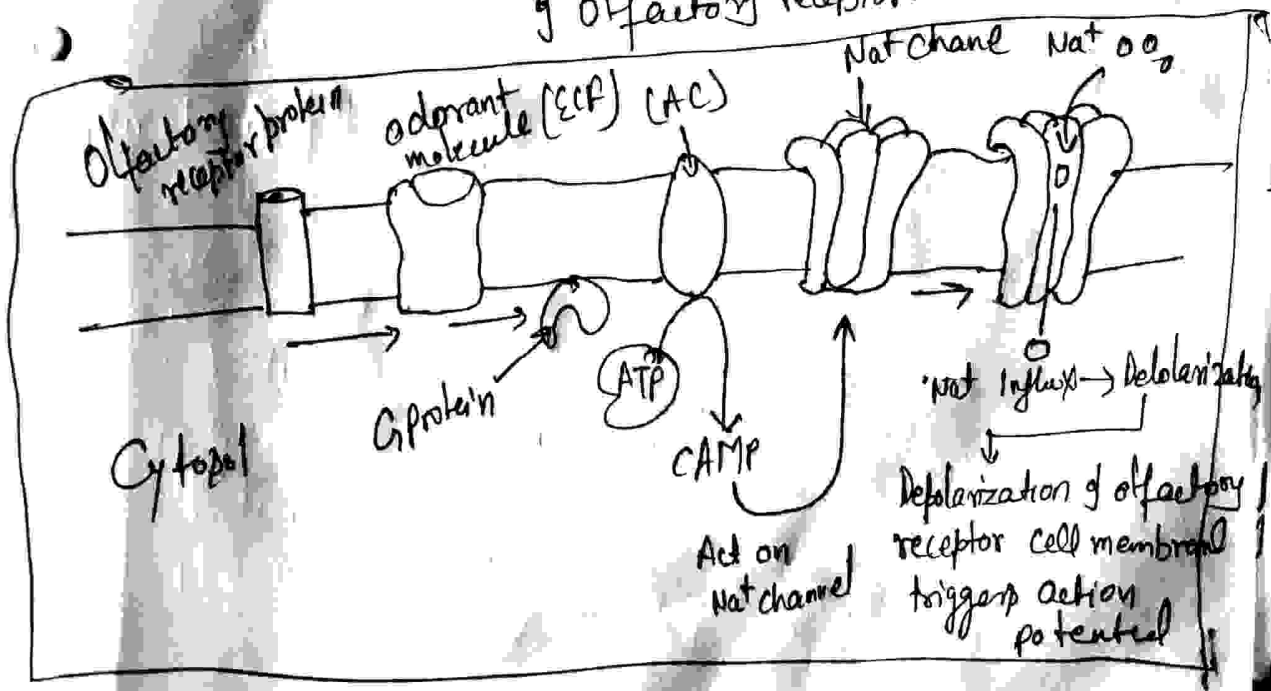 of olfactory
Olfactory
receptor protein
odorant
molecule (ECF)
(AC)
Na+ Chanel
Na+
G Protein
ATP
CAMP
Act on
Na+ channel
Na+ Influx → Delolarization
Depolarization of olfactory
receptor cell membrane
triggers action
potential